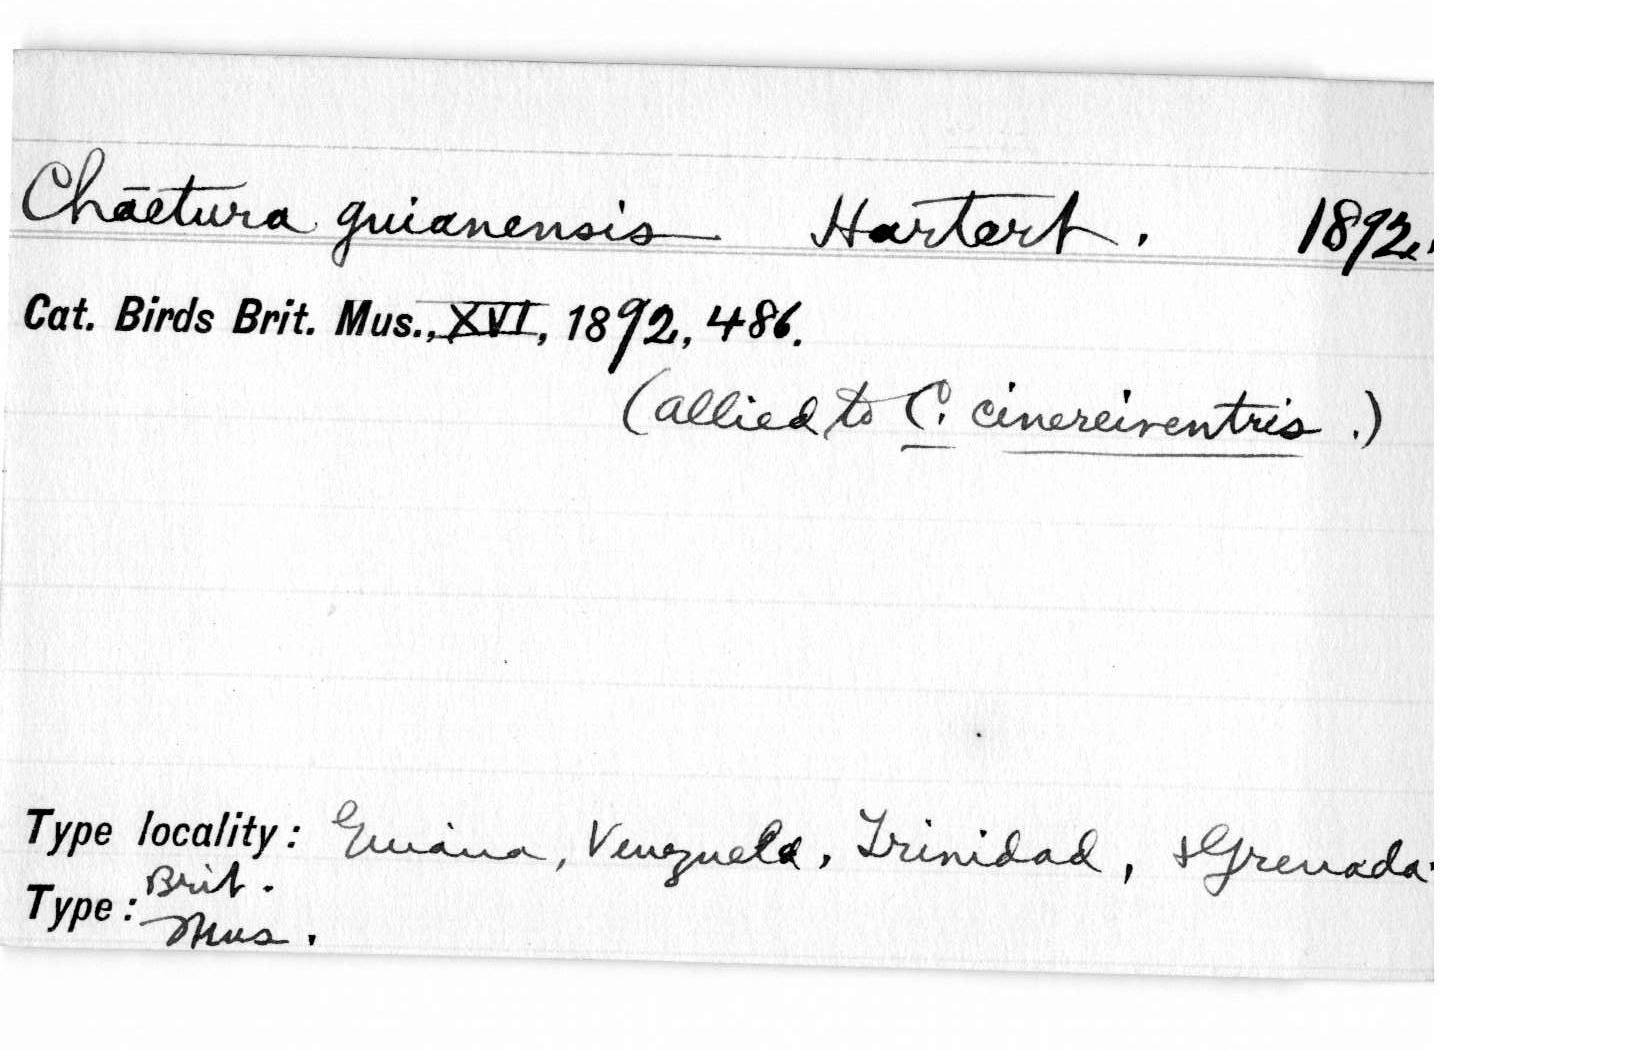 Chaetura guianensis Hartert. 1892.
Cat. Birds Brit. Mus., XVI, 1892, 486.
(allied to C. cinereiventris.)
Type locality: Guiana, Venezuela, Trinidad, & Grenada.
Type: Brit.
Mus.